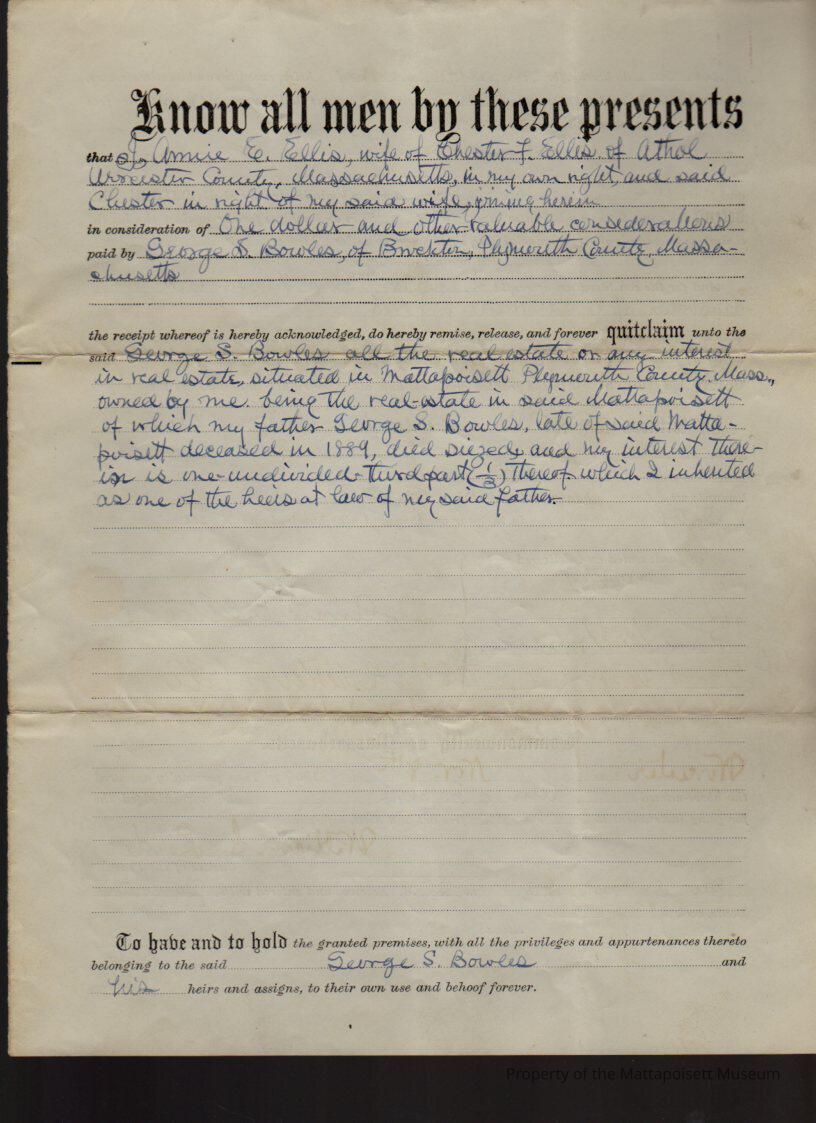 Know all men by these presents
that I, Annie E. Ellis, wife of Chester F. Ellis of Athol
Worcester County, Massachusetts, in my own right, and said
Chester in right of my said wife, joining herein
in consideration of One dollar and other valuable considerations
paid by George S. Bowles, of Brockton, Plymouth County, Massa-
chusetts
the receipt whereof is hereby acknowledged, do hereby remise, release, and forever quitclaim unto the
said George S. Bowles all the real estate or any interest
in real estate, situated in Mattapoisett Plymouth County, Mass.,
owned by me. being the real estate in said Mattapoisett
of which my father George S. Bowles, late of said Matta-
poisett deceased in 1889, died siezed, and my interest there-
in is one undivided third part (1/3) thereof. which I inherited
as one of the heirs at law of my said father.
To have and to hold the granted premises, with all the privileges and appurtenances thereto
belonging to the said George S. Bowles and
his heirs and assigns, to their own use and behoof forever.
Property of the Mattapoisett Museum